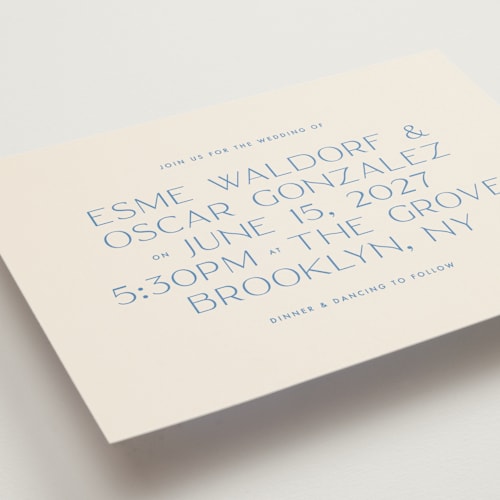 JOIN US FOR THE WEDDING OF
ESME WALDORF &
OSCAR GONZALEZ
ON JUNE 15, 2027
5:30PM AT THE GROVE
BROOKLYN, NY
DINNER & DANCING TO FOLLOW